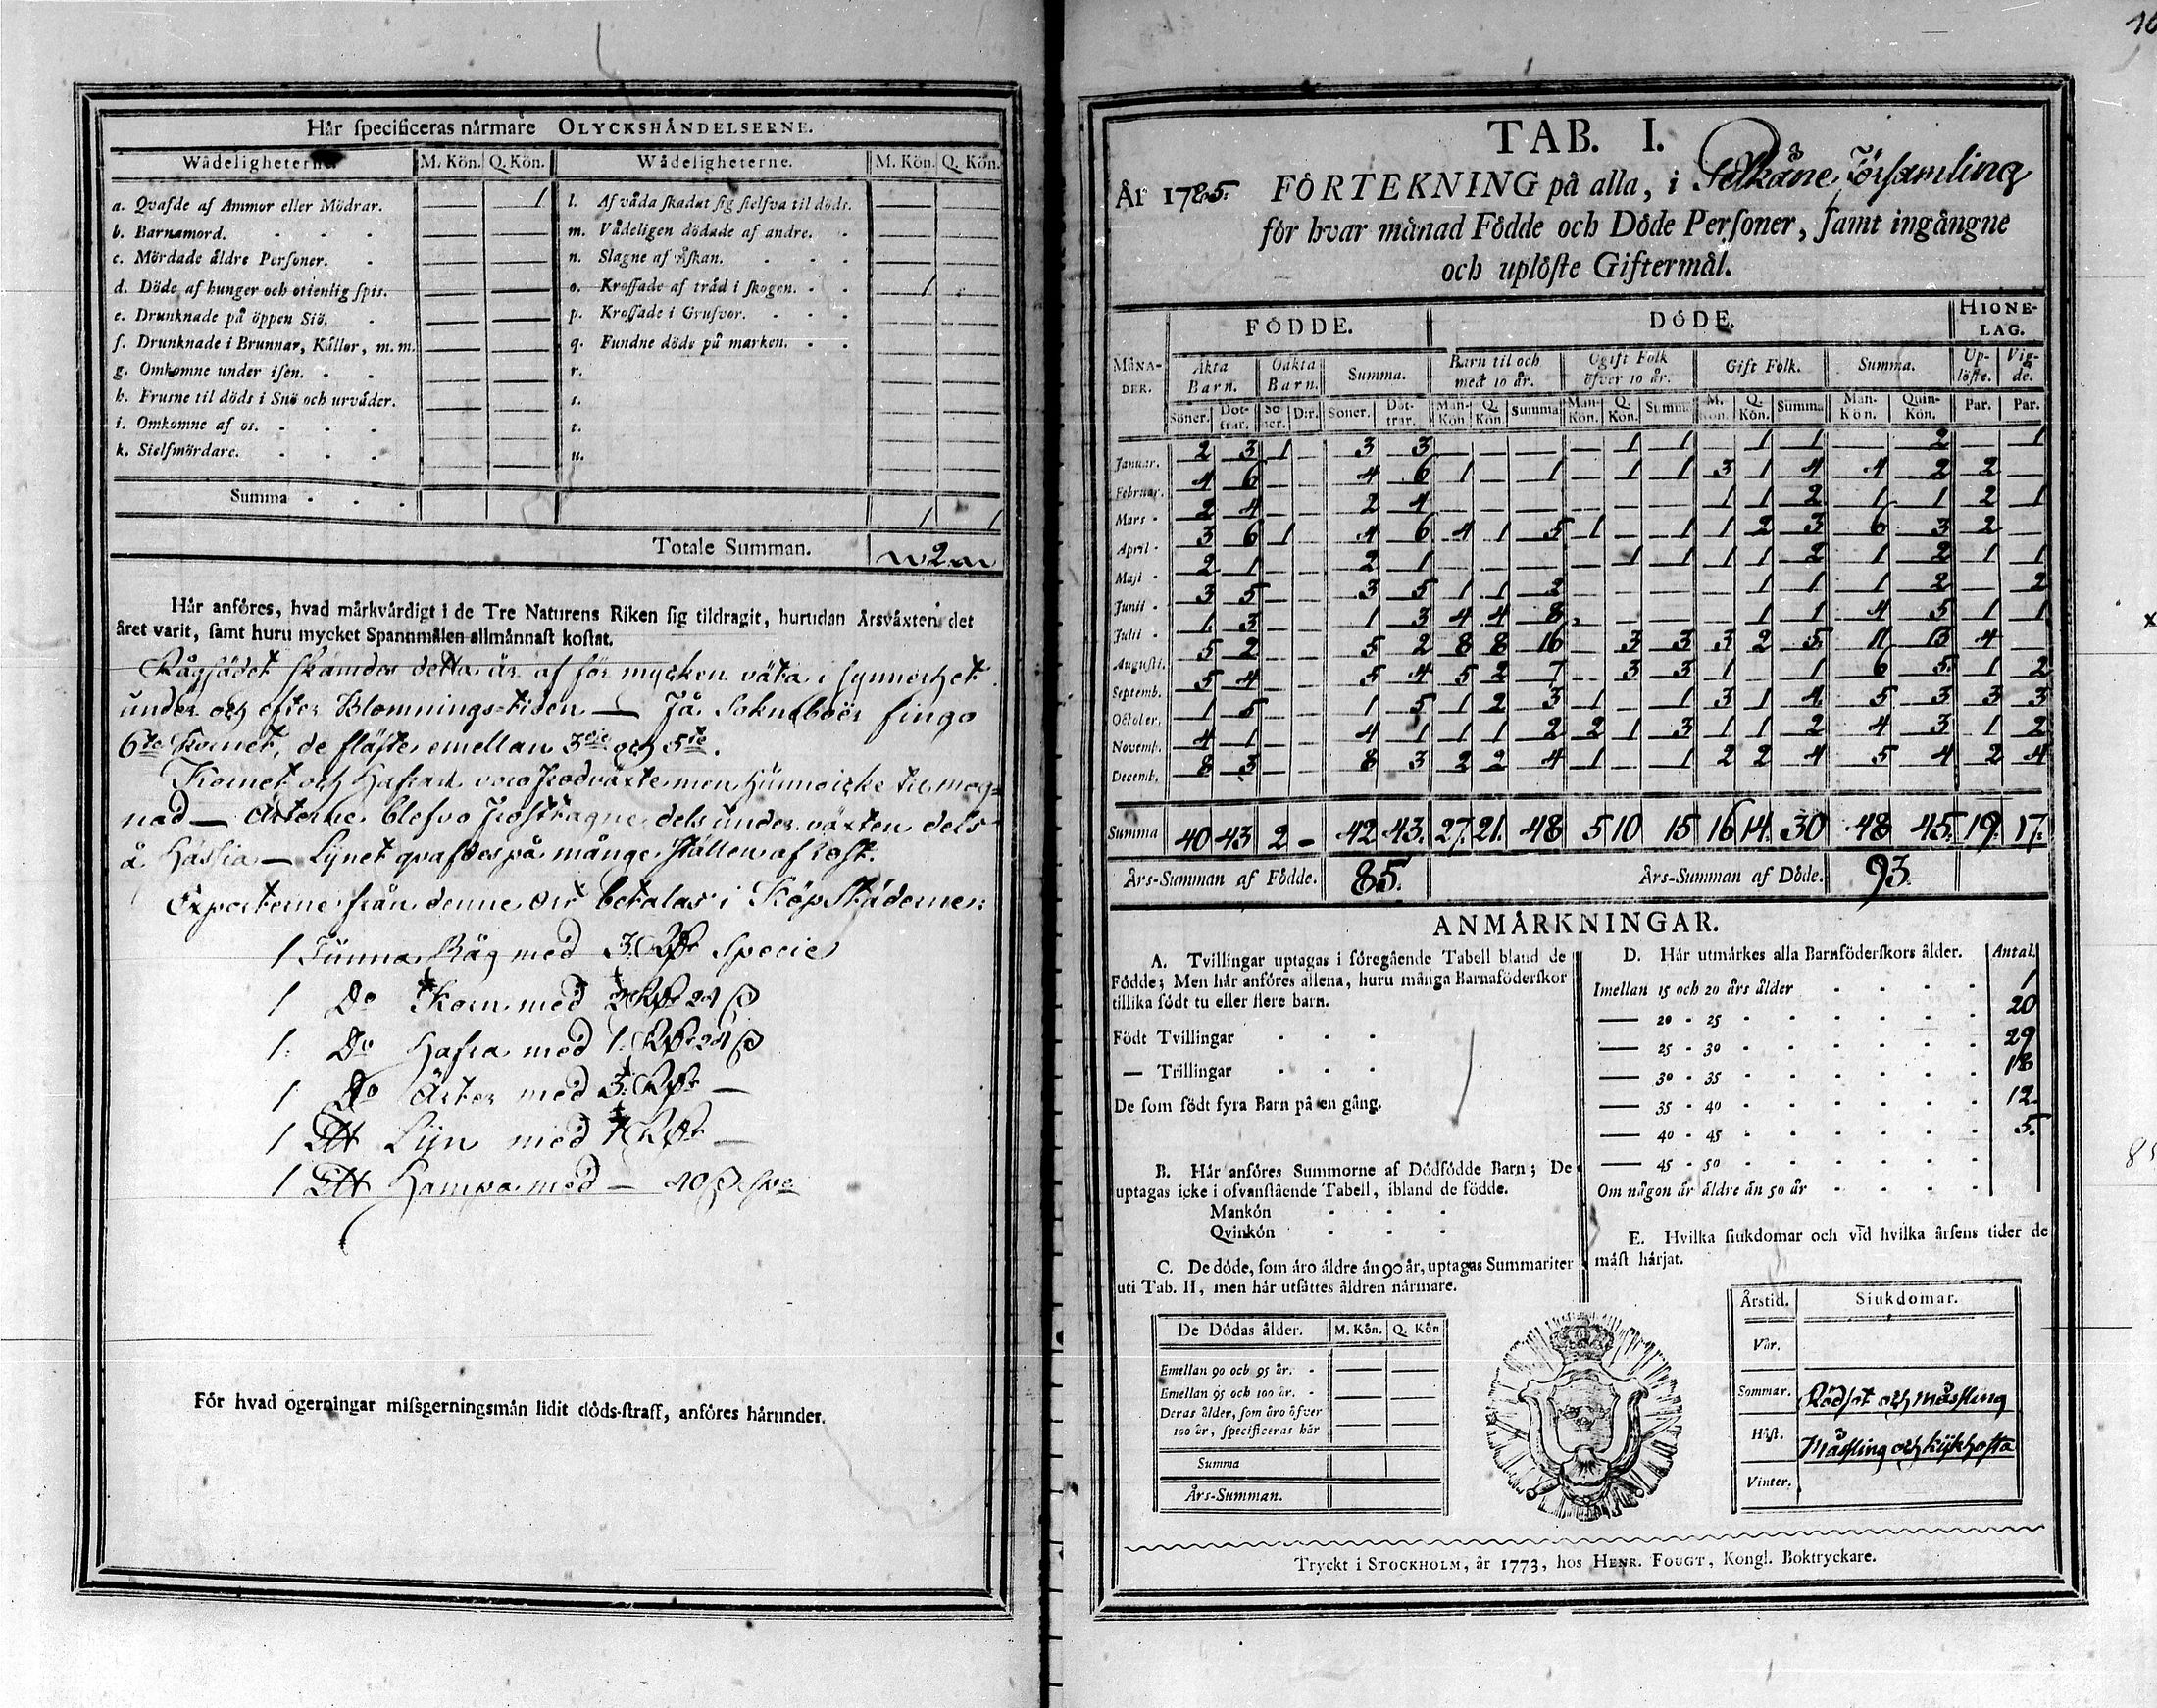 Här specificeras närmare OLYCKSHÄNDELSERNE.
Wådeligheterne. M. Kön. Q. Kön. Wådeligheterne. M. Kön. Q. Kön.
a. Qvafde af Ammor eller Mödrar. — 1 l. Af våda skadat sig sielfva til döds. — —
b. Barnamord. — — m. Vådeligen dödade af andre. — —
c. Mördade äldre Personer. — — n. Slagne af Åskan. — —
d. Döde af hunger och otienlig spis. — — o. Krossade af träd i skogen. 1
e. Drunknade på öppen Siö. — — p. Krossade i Grufvor. — —
f. Drunknade i Brunnar, Källor, m. m. — — q. Fundne döde på marken. — —
g. Omkomne under isen. — — r. — —
h. Frusne til döds i Snö och urväder. — — s. — —
i. Omkomne af os. — — t. — —
k. Sielfmördare. — — u. — —
Summa 1 1
Totale Summan. 2
Här anföres, hvad märkvärdigt i de Tre Naturens Riken sig tildragit, hurudan Årsväxten det
året varit, samt huru mycket Spannmålen allmännast kostat.
Rågsädet skämdes detta år af för mycken väta i synnerhet
under och efter Blomnings-tiden — Få Sokneboer fingo
6te Kornet, de fläste emellan 3die och 5te.
Kornet och Hafran voro frodväxte men hunno icke til mog=
nad — Ärterne blefvo frosttagne dels under växten dels
å Hässia — Lijnet qvafdes på många ställen af rost.
Exporterne från denne ort betalas i Köpstäderne:
1 Tunna Råg med 3 Rdr Specie
1 Do Korn med 2 Rdr 24 ß
1 Do Hafra med 1 Rdr 24 ß
1 Do Ärter med 3 Rdr —
1 Lijn med 1 Rdr —
1 Hampa med — 40 ß spe
För hvad ogerningar missgerningsmän lidit döds-straff, anföres härunder.
TAB. I.
År 1785. FÖRTEKNING på alla, i Pelkäne Församling
för hvar månad Födde och Döde Personer, samt ingångne
och uplöste Giftermål.
FÖDDE. DÖDE. HIONE-LAG.
MÅNA-DER. Äkta Barn. Oäkta Barn. Summa. Barn til och med 10 år. Ogift Folk öfver 10 år. Gift Folk. Summa. Up-löste. Vig-de.
Söner. Döt-trar. Sö-ner. Dtr. Söner. Döt-trar. Man-Kön Q. Kön. Summa Man-Kön. Q. Kön. Summa M. Kön. Q. Kön. Summa Man-Kön. Quin-Kön. Par. Par.
Januar. 2 3 1 — 3 3 — — — — 1 1 — 1 1 2 — 1
Februar. 4 6 — — 4 6 1 — 1 — 1 1 3 1 4 4 2 2 —
Mars 2 4 — — 2 4 — — — — — — 1 1 2 1 1 2 1
April 3 6 1 — 4 6 4 1 5 1 — 1 1 2 3 6 3 2 —
Maji 2 1 — — 2 1 — — — — 1 1 1 1 2 1 2 1 1
Junii 3 5 — — 3 5 1 1 2 — — — — 1 1 1 2 — 2
Julii 1 3 — — 1 3 4 4 8 — — — — 1 1 4 5 1 1
Augusti. 5 2 — — 5 2 8 8 16 — 3 3 3 2 5 11 13 4 —
Septemb. 5 4 — — 5 4 5 2 7 — 3 3 1 — 1 6 5 1 2
October. 1 5 — — 1 5 1 2 3 1 — 1 3 1 4 5 3 3 3
Novemb. 4 1 — — 4 1 1 1 2 2 1 3 1 1 2 4 3 1 2
Decemb. 8 3 — — 8 3 2 2 4 1 — 1 2 2 4 5 4 2 4
Summa 40 43 2 — 42 43. 27. 21. 48 5 10 15 16 14. 30 48 45. 19. 17.
Års-Summan af Födde. 85. Års-Summan af Döde. 93.
ANMÄRKNINGAR.
A. Tvillingar uptagas i föregående Tabell bland de
Födde; Men här anföres allena, huru många Barnaföderskor
tillika födt tu eller flere barn.
Födt Tvillingar
— Trillingar
De som födt fyra Barn på en gång.
B. Här anföres Summorne af Dödfödde Barn; De
uptagas icke i ofvanstående Tabell, ibland de födde.
Mankön
Qvinkön
C. De döde, som äro äldre än 90 år, uptagas Summariter
uti Tab. II, men här utsättes åldren närmare.
De Dödas ålder. M. Kön. Q. Kön
Emellan 90 och 95 år. — —
Emellan 95 och 100 år. — —
Deras ålder, som äro öfver — —
100 år, specificeras här — —
Summa
Års-Summan.
D. Här utmärkes alla Barnföderskors ålder. Antal.
Imellan 15 och 20 års ålder 1
— 20 - 25 20
— 25 - 30 29
— 30 - 35 18
— 35 - 40 12
— 40 - 45 5.
— 45 - 50
Om någon är äldre än 50 år
E. Hvilka siukdomar och vid hvilka årsens tider de
mäst härjat.
Årstid. Siukdomar.
Vår.
Sommar. Rödsot och mässling
Höst. Mässling och kijkhosta
Vinter.
Tryckt i STOCKHOLM, år 1773, hos HENR. FOUGT, Kongl. Boktryckare.